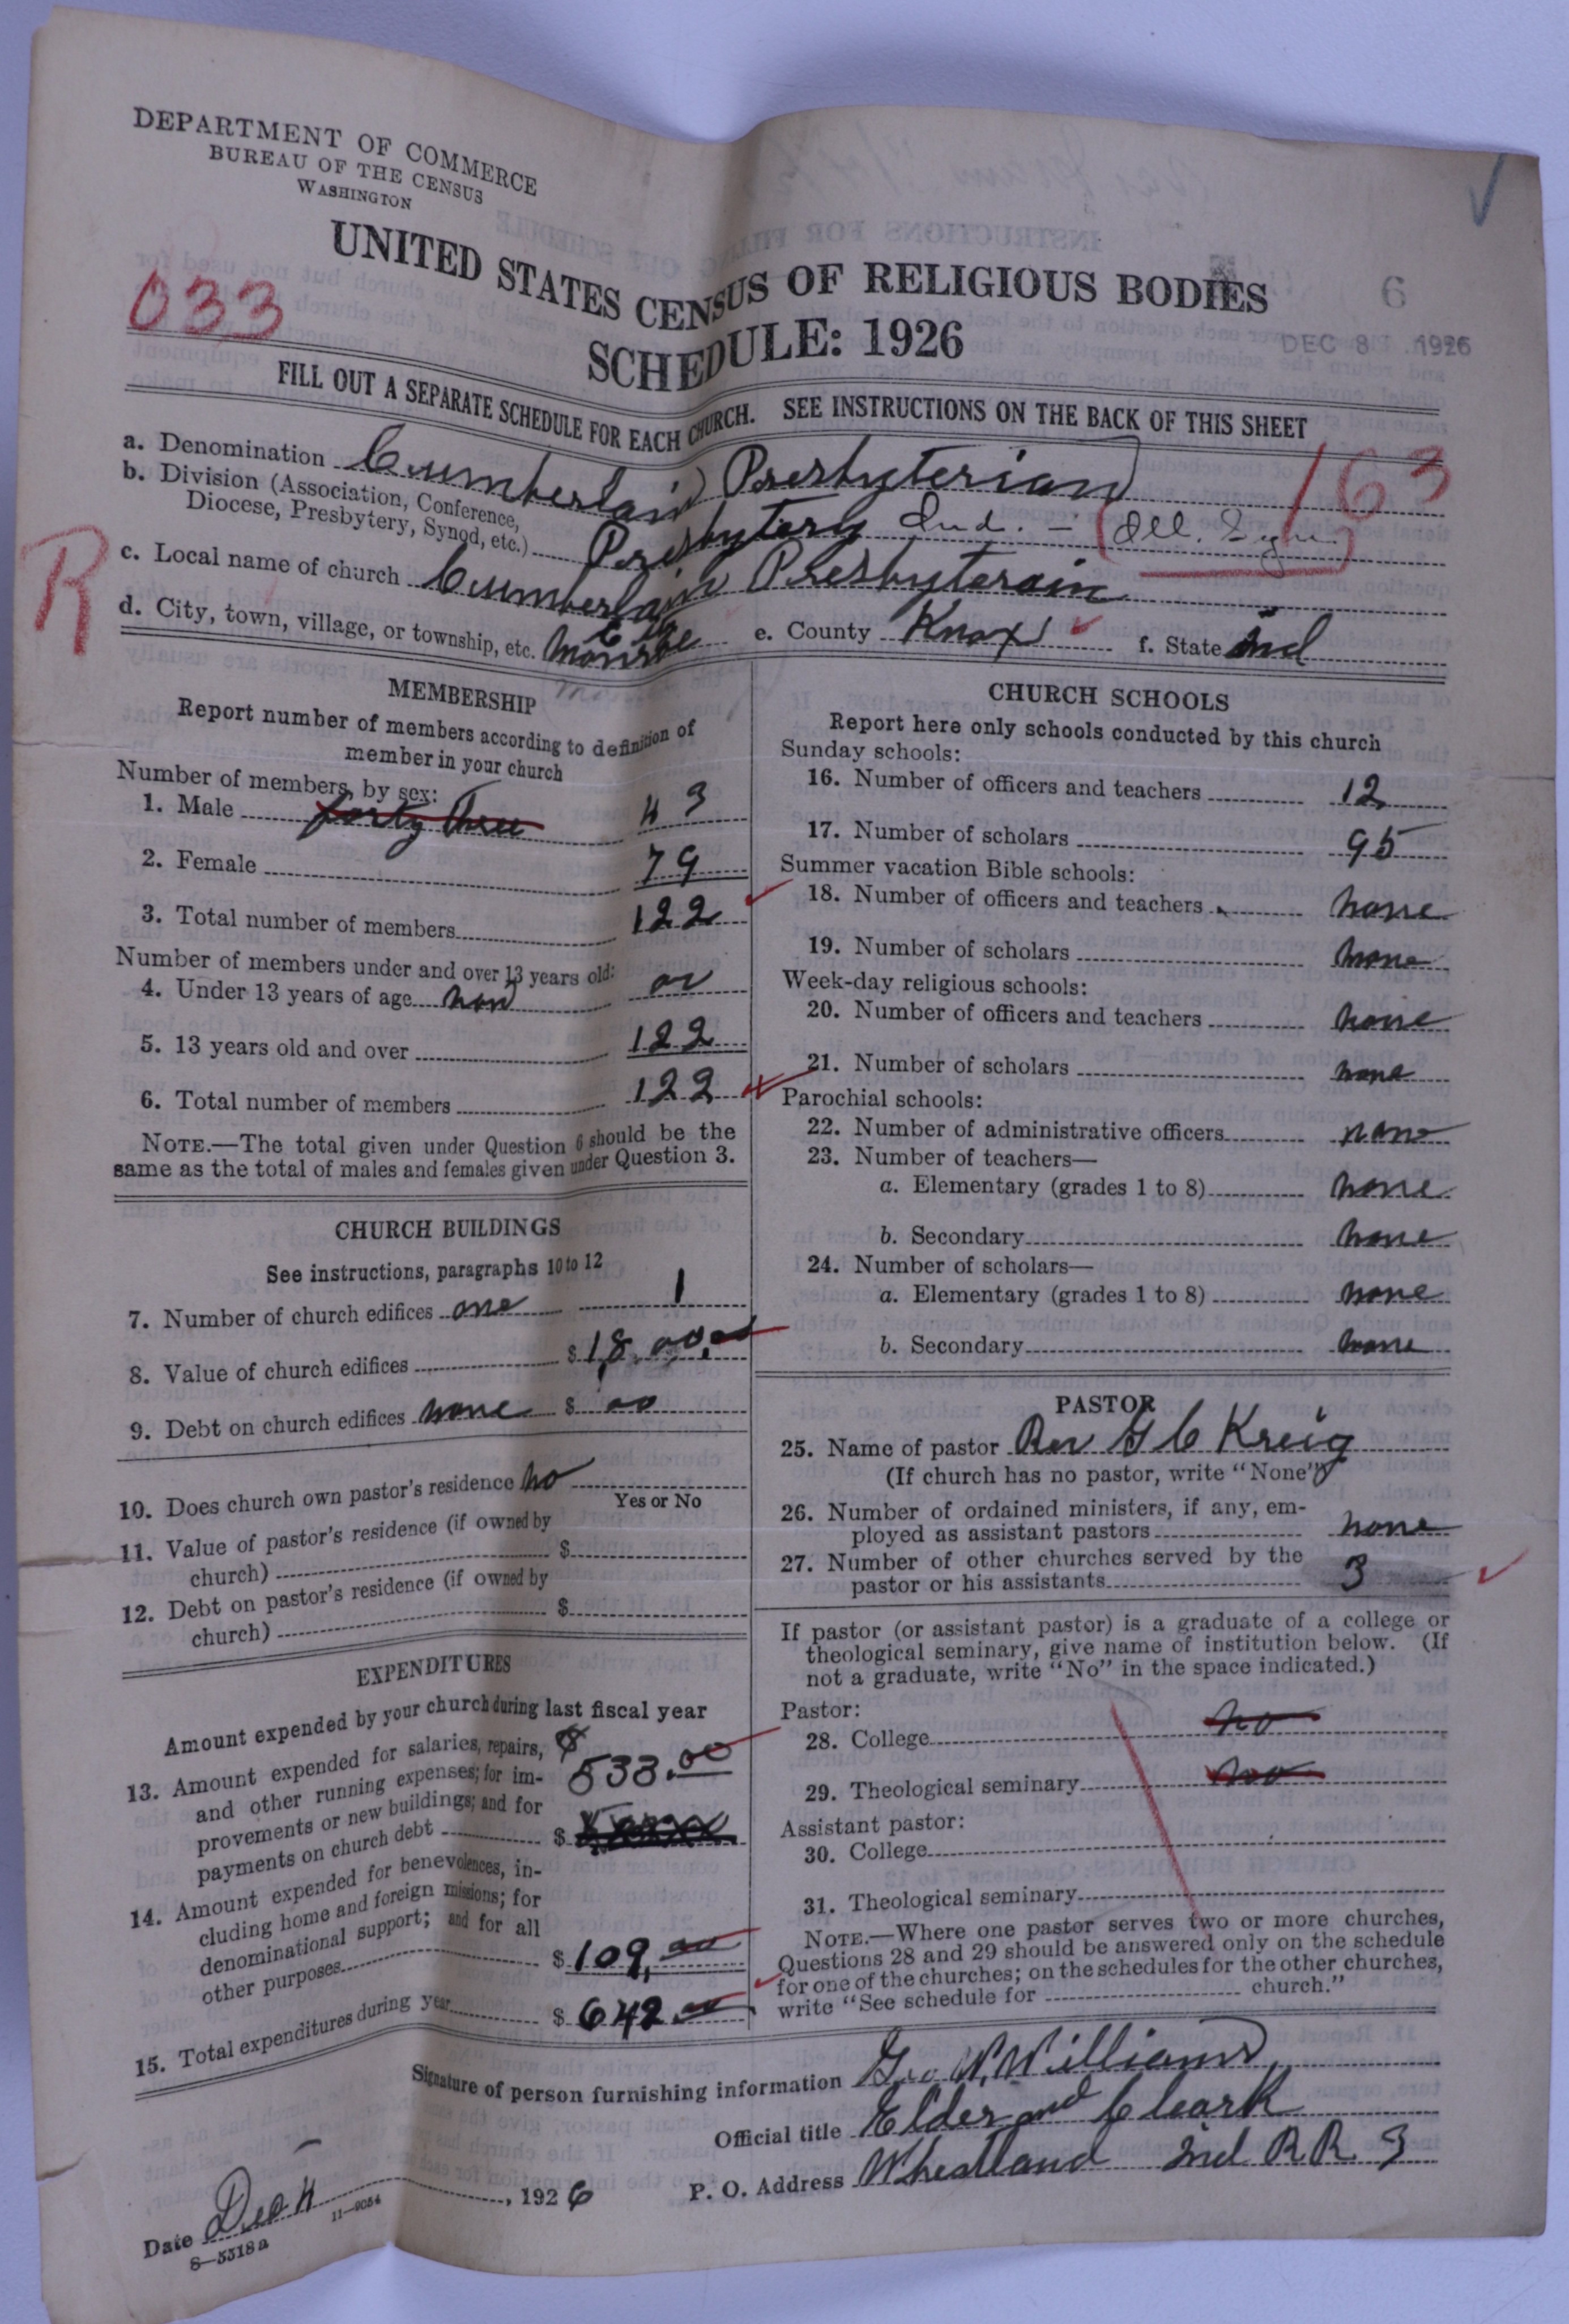 DEPARTMENT OF COMMERCE
BUREAU OF THE CENSUS
WASHINGTON
UNITED STATES CENSUS OF RELIGIOUS BODIES
SCHEDULE: 1926
033
6
DEC 8 1926
FILL OUT A SEPARATE SCHEDULE FOR EACH CHURCH. SEE INSTRUCTIONS ON THE BACK OF THIS SHEET
163
R
a. Denomination Cumberlain Presbyterian
b. Division (Association, Conference,
Diocese, Presbytery, Synod, etc.) Presbytery Ind. - (Ill.
c. Local name of church Cumberlain Presbyterain
d. City, town, village, or township, etc. Monroe e. County Knox f. State Ind
MEMBERSHIP
Report number of members according to definition of
member in your church
Number of members, by sex:
1. Male forty three 43
2. Female 79
3. Total number of members 122
Number of members under and over 13 years old:
4. Under 13 years of age non oo
5. 13 years old and over 122
6. Total number of members 122
NOTE.—The total given under Question 6 should be the
same as the total of males and females given under Question 3.
CHURCH BUILDINGS
See instructions, paragraphs 10 to 12
7. Number of church edifices one 1
8. Value of church edifices $ 18,00.00
9. Debt on church edifices none $ oo
10. Does church own pastor's residence no
Yes or No
11. Value of pastor's residence (if owned by
church) $
12. Debt on pastor's residence (if owned by
church) $
EXPENDITURES
Amount expended by your church during last fiscal year
13. Amount expended for salaries, repairs, $
and other running expenses; for im- 533.00
provements or new buildings; and for
payments on church debt $
14. Amount expended for benevolences, in-
cluding home and foreign missions; for
denominational support; and for all
other purposes $ 109.00
15. Total expenditures during year $ 642.00
CHURCH SCHOOLS
Report here only schools conducted by this church
Sunday schools:
16. Number of officers and teachers 12
17. Number of scholars 95
Summer vacation Bible schools:
18. Number of officers and teachers none
19. Number of scholars none
Week-day religious schools:
20. Number of officers and teachers none
21. Number of scholars none
Parochial schools:
22. Number of administrative officers none
23. Number of teachers—
a. Elementary (grades 1 to 8) none
b. Secondary none
24. Number of scholars—
a. Elementary (grades 1 to 8) none
b. Secondary none
PASTOR
25. Name of pastor Rev G C Kreig
(If church has no pastor, write "None")
26. Number of ordained ministers, if any, em-
ployed as assistant pastors none
27. Number of other churches served by the
pastor or his assistants 3
If pastor (or assistant pastor) is a graduate of a college or
theological seminary, give name of institution below. (If
not a graduate, write "No" in the space indicated.)
Pastor:
28. College no
29. Theological seminary no
Assistant pastor:
30. College
31. Theological seminary
NOTE.—Where one pastor serves two or more churches,
Questions 28 and 29 should be answered only on the schedule
for one of the churches; on the schedules for the other churches,
write "See schedule for church."
Signature of person furnishing information Geo W. Williams
Official title Elder and Cleark
P. O. Address Wheatland Ind R R 3
Date Dec 4, 1926
11-9054
8-5518a